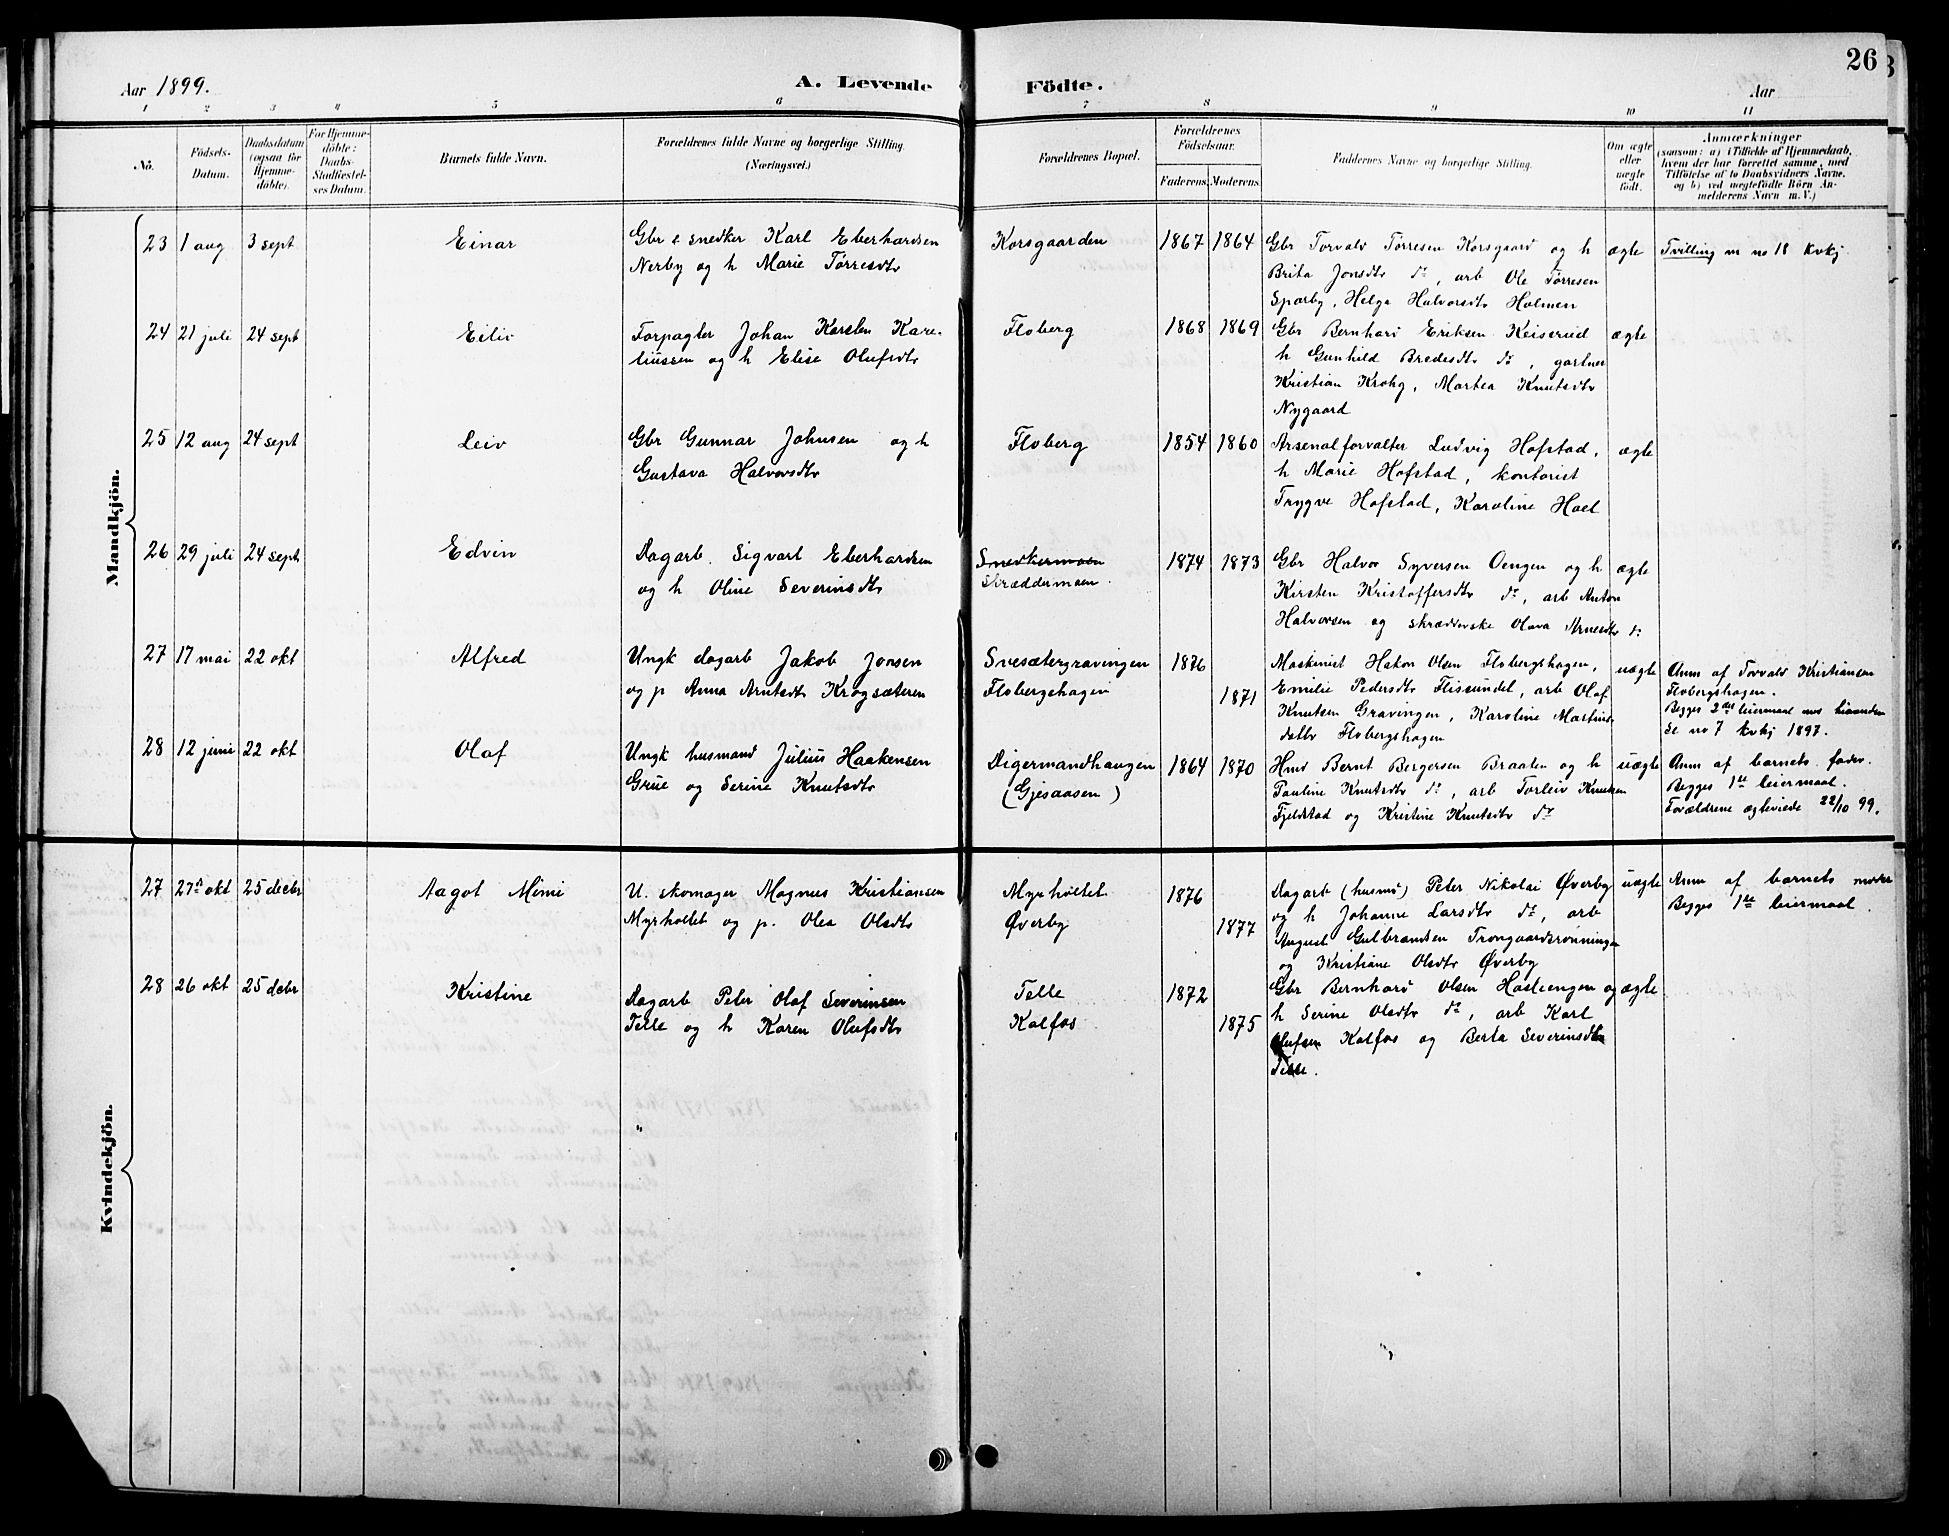 26
Aar 1899.
A. Levende Födte.
Aar
1 2 3 4 5 6 7 8 9 10 11
No.
Födsels-Datum.
Daabsdatum (ogsaa for Hjemmedöbte).
For Hjemmedöbte: Daabs-Stadfæstelses Datum.
Barnets fulde Navn.
Forældrenes fulde Navne og borgerlige Stilling.
(Næringsvei.)
Forældrenes Bopæl.
Forældrenes Födselsaar.
Faderens. Moderens.
Faddernes Navne og borgerlige Stilling.
Om ægte eller uægte födt.
Anmærkninger
(saasom: a) i Tilfælde af Hjemmedaab,
hvem der har forrettet samme, med
Tilföielse af to Daabsvidners Navne,
og b) ved uægtefödte Börn An-
melderens Navn m. V.)
Mandkjön.
23 1 aug 3 sept Einar
Gbr & snedker Karl Eberhardsen
Nerby og h Marie Tørresdtr
Korsgaarden 1867 1864
Gbr Torvald Tørresen Korsgaard og h
Brita Jonsdtr dº, arb Ole Tørresen
Sparby, Helga Halvorsdtr Holmen
ægte
Tvilling m no 18 kvkj.
24 21 juli 24 sept Eiliv
Forpagter Johan Karsten Kare-
liussen og h Elise Olufsdtr
Floberg 1868 1869
Gbr Bernhard Eriksen Keiserud
h Gunhild Bredesdtr dº, gartner
Kristian Krohg, Martea Knutsdtr
Nygaard
ægte
25 12 aug 24 sept Leiv
Gbr Gunnar Johnsen og h
Gustava Halvorsdtr
Floberg 1854 1860
Arsenalforvalter Ludvig Hofstad,
h Marie Hofstad, kontorist
Trygve Hofstad, Karoline Hoel
ægte
26 29 juli 24 sept Edvin
Dagarb. Sigvart Eberhardsen
og h Oline Severinsdtr
Snedkermoen
Skræddermoen.
1874 1873
Gbr Halvor Syversen Oengen og h
Kirsten Kristoffersdtr dº, arb Anton
Halvorsen og skrædderske Olava Arnesdtr dº
ægte
27 17 mai 22 okt Alfred
Ungk dagarb Jakob Jonsen
og p Anna Arntsdtr Krogsæteren
Svesætergravingen
Flobergshagen
1876 1871
Maskinist Hakon Olsen Flobergshagen,
Emilie Pedersdtr Flissundet, arb Olaf
Knutsen Gravingen, Karoline Martins-
datter Flobergshagen
uægte
Anm af Torvald Kristiansen
Flobergshagen.
Begges 2det leiermaal med hinanden
se no 7 kvkj 1897.
28 12 juni 22 okt Olaf
Ungk husmand Julius Haakensen
Grue og Serine Knutsdtr
Digermandhaugen
(Gjesaasen)
1864 1870
Hmd Bernt Bergersen Braaten og h
Pauline Knutsdtr dº, arb Torleiv Knutsen
Fjeldstad og Kristine Knutsdtr dº
uægte
Anm af barnets fader.
Begges 1ste leiermaal.
Forældrene ægteviede 22/10 99.
Kvindekjön.
27 27de okt 25 decbr Aagot Mimi
U. skomager Magnus Kristiansen
Myrholtet og p. Olea Olsdtr
Myrholtet
Øverby
1876 1877
Dagarb (husmd) Peter Nikolai Øverby
og h Johanne Larsdtr dº, arb
August Gulbrandsen Trongaardsrønningen
og Kristiane Olsdtr Øverby
uægte
Anm af barnets moder
Begges 1ste leiermaal.
28 26 okt 25 decbr Kristine
Dagarb Peter Olaf Severinsen
Telle og h Karen Olufsdtr
Telle
Kalfos
1872 1875
Gbr Bernhard Olsen Hasleengen og
h Serine Olsdtr dº, arb Karl
Olufsen Kalfos og Berta Severinsdtr
Telle.
ægte